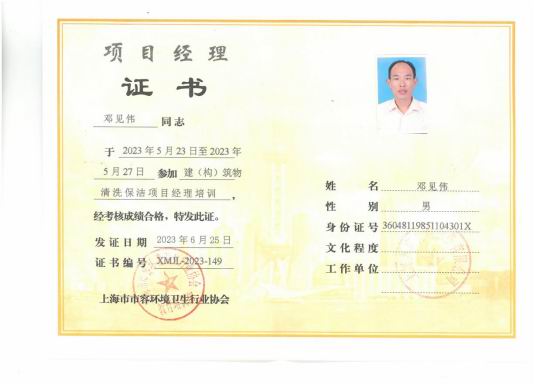 项目经理
证书
邓见伟 同志
于 2023年5月23日至2023年
5月27日 参加 建（构）筑物
清洗保洁项目经理培训，
经考核成绩合格，特发此证。
发证日期 2023年6月25日
证书编号 XMJL-2023-149
上海市市容环境卫生行业协会
姓名 邓见伟
性别 男
身份证号 36048119851104301X
文化程度
工作单位